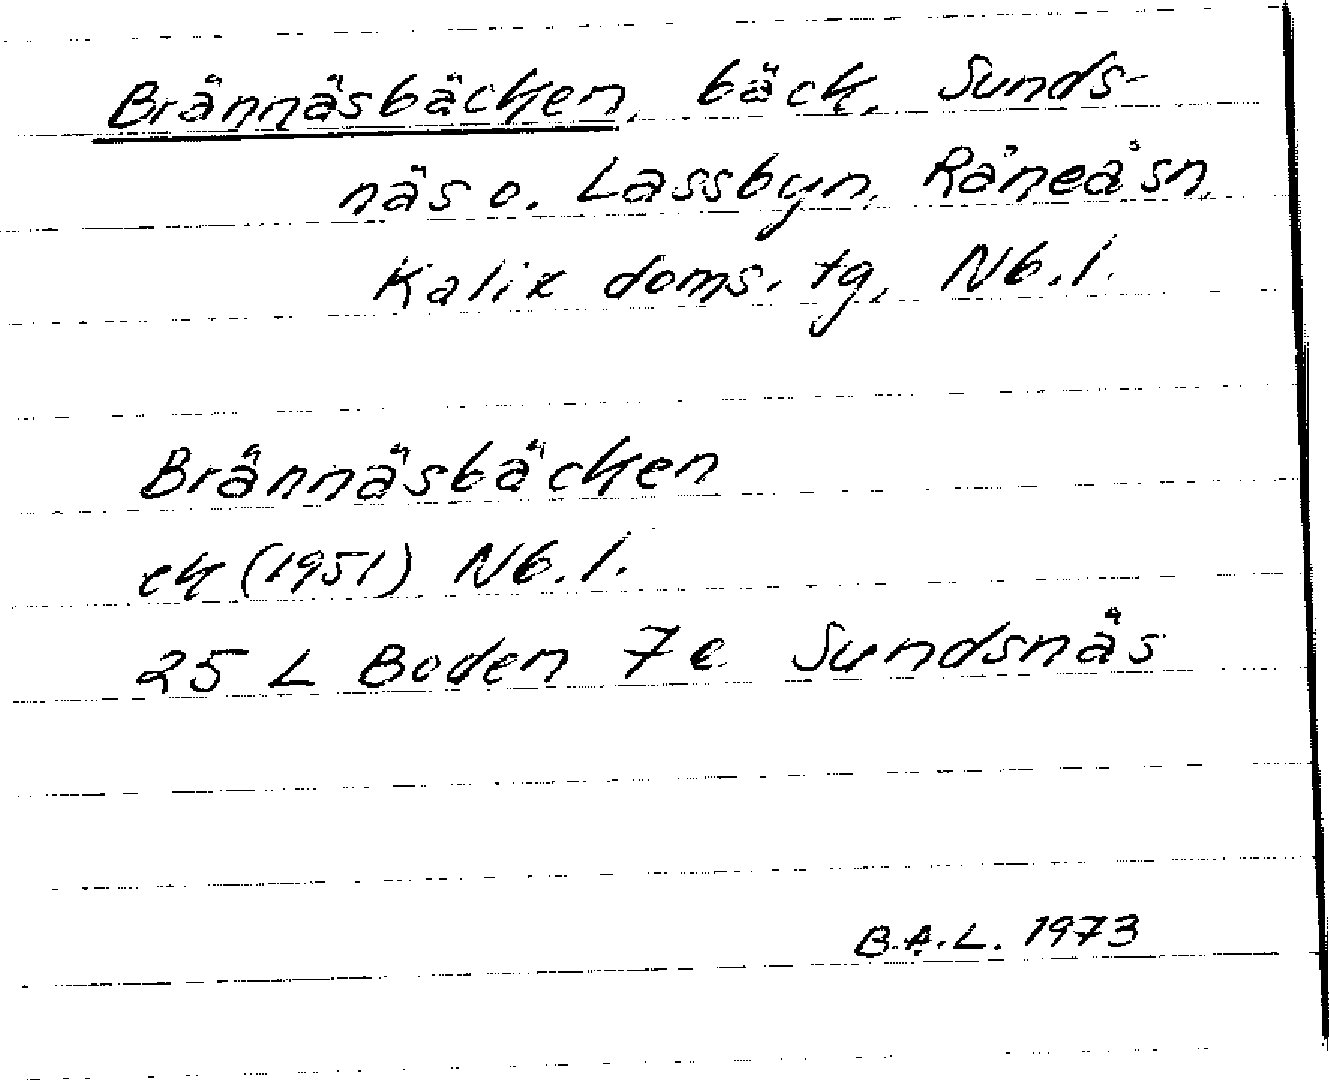 Brännäsbäcken, bäck, Sunds-
näs o. Lassbyn, Råneå sn,
Kalix doms. tg, Nb. l.
Brännäsbäcken
ek (1951) Nb. l.
25 L Boden 7e Sundsnäs
B.A.L. 1973